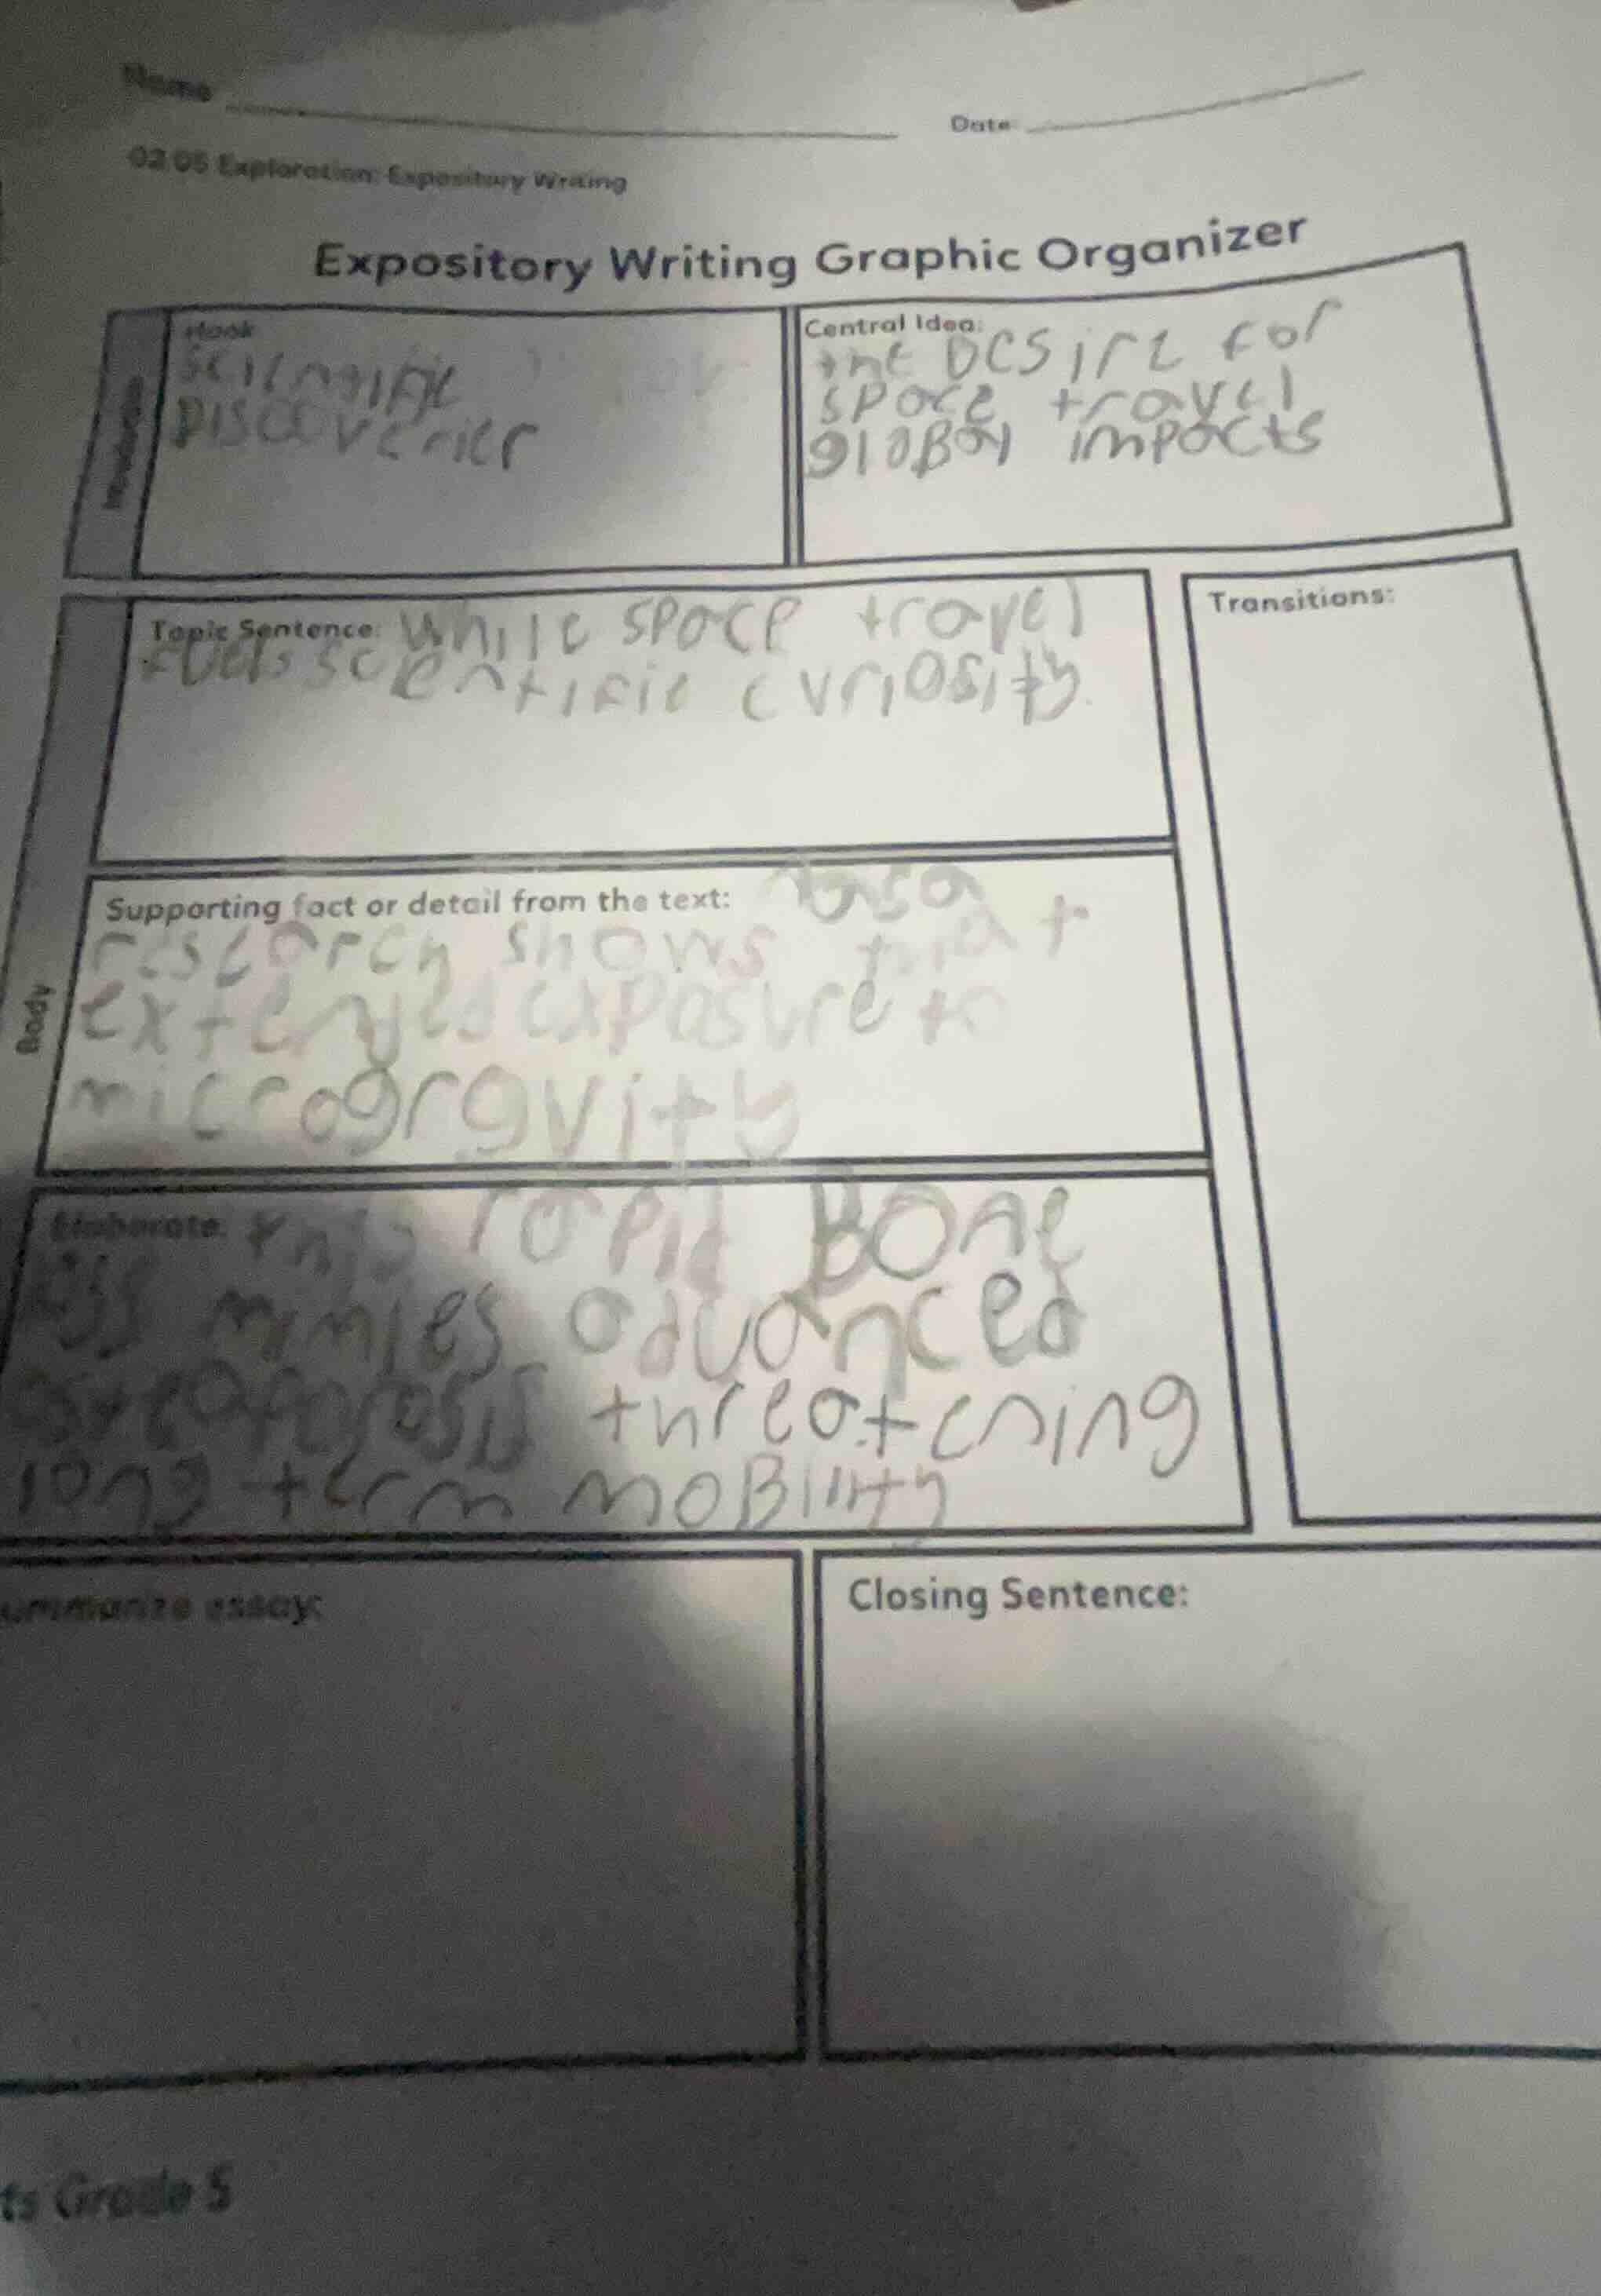 Name
Date
02.05 Exploration: Expository Writing
Expository Writing Graphic Organizer
Introduction
Hook
scientific
Discoverier
Central Idea:
the Desire for
space travel
gloBal impacts
Body
Topic Sentence: while space travel
fuels scientific curiosity.
Transitions:
Supporting fact or detail from the text: nasa
research shows that
extended exposure to
microgravity
Elaborate: this rapid Bone
mimies advanced
threatening
long term moBility
ummarize essay:
Closing Sentence:
ts Grade 5